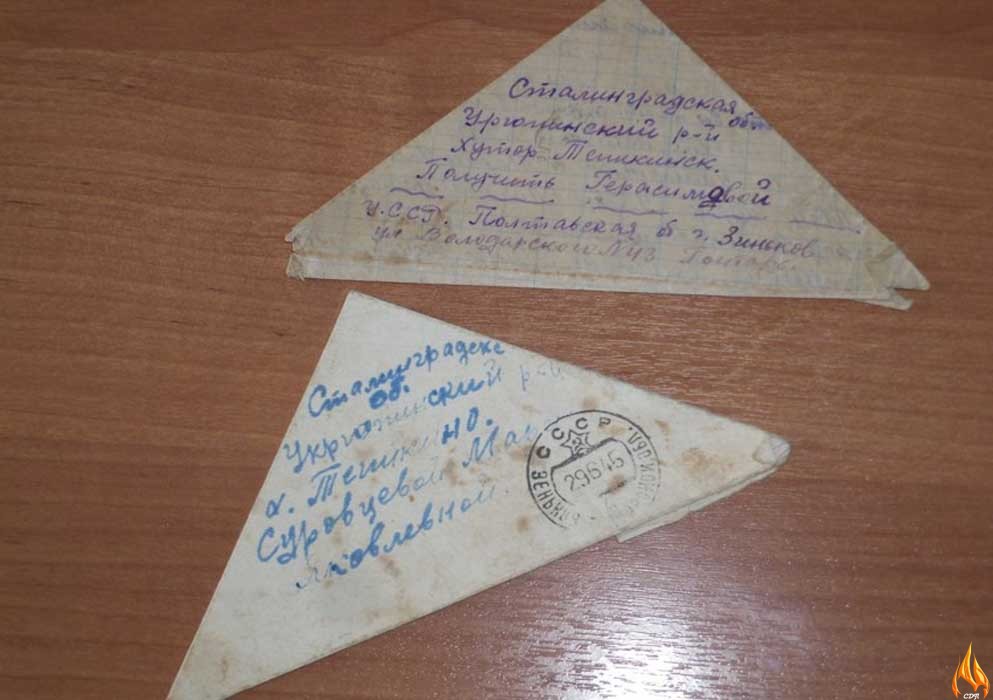 Сталинградская об.
Урюпинский р-й
Хутор Тепикинск.
Получить Герасимовой
У.ССР. Полтавская об г. Зиньков
ул Володарского №43
Сталинградске
об.
Укрюпинский р-н
х. Тепикино.
Суровцевой
Яковлевной.
СССР
29645
СДП